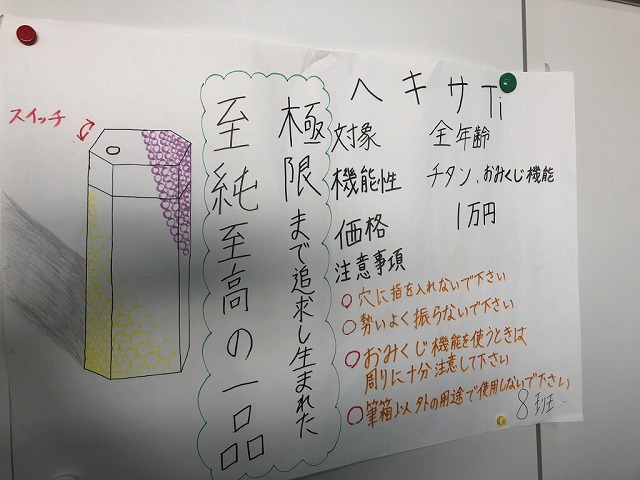 ヘキサTi
対象 全年齢
機能性 チタン、おみくじ機能
価格 1万円
注意事項
○穴に指を入れないで下さい
○勢いよく振らないで下さい
○おみくじ機能を使うときは
周りに十分注意して下さい
○筆箱以外の用途で使用しないで下さい
8班
極限まで追求し生まれた
至純至高の一品
スイッチ